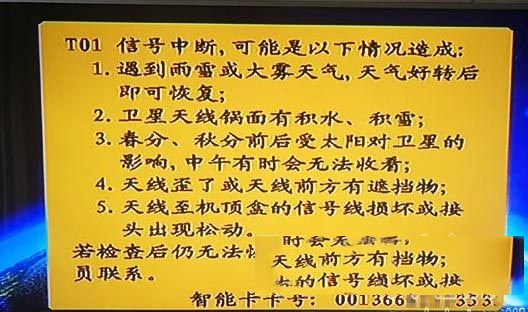 T01 信号中断,可能是以下情况造成:
1. 遇到雨雪或大雾天气,天气好转后
即可恢复;
2. 卫星天线锅面有积水、积雪;
3. 春分、秋分前后受太阳对卫星的
影响,中午有时会无法收看;
4. 天线歪了或天线前方有遮挡物;
5. 天线至机顶盒的信号线损坏或接
头出现松动。
若检查后仍无法
时会无
员联系。
天线前方有挡物;
的信号线损坏或接
智能卡卡号: 001366 353